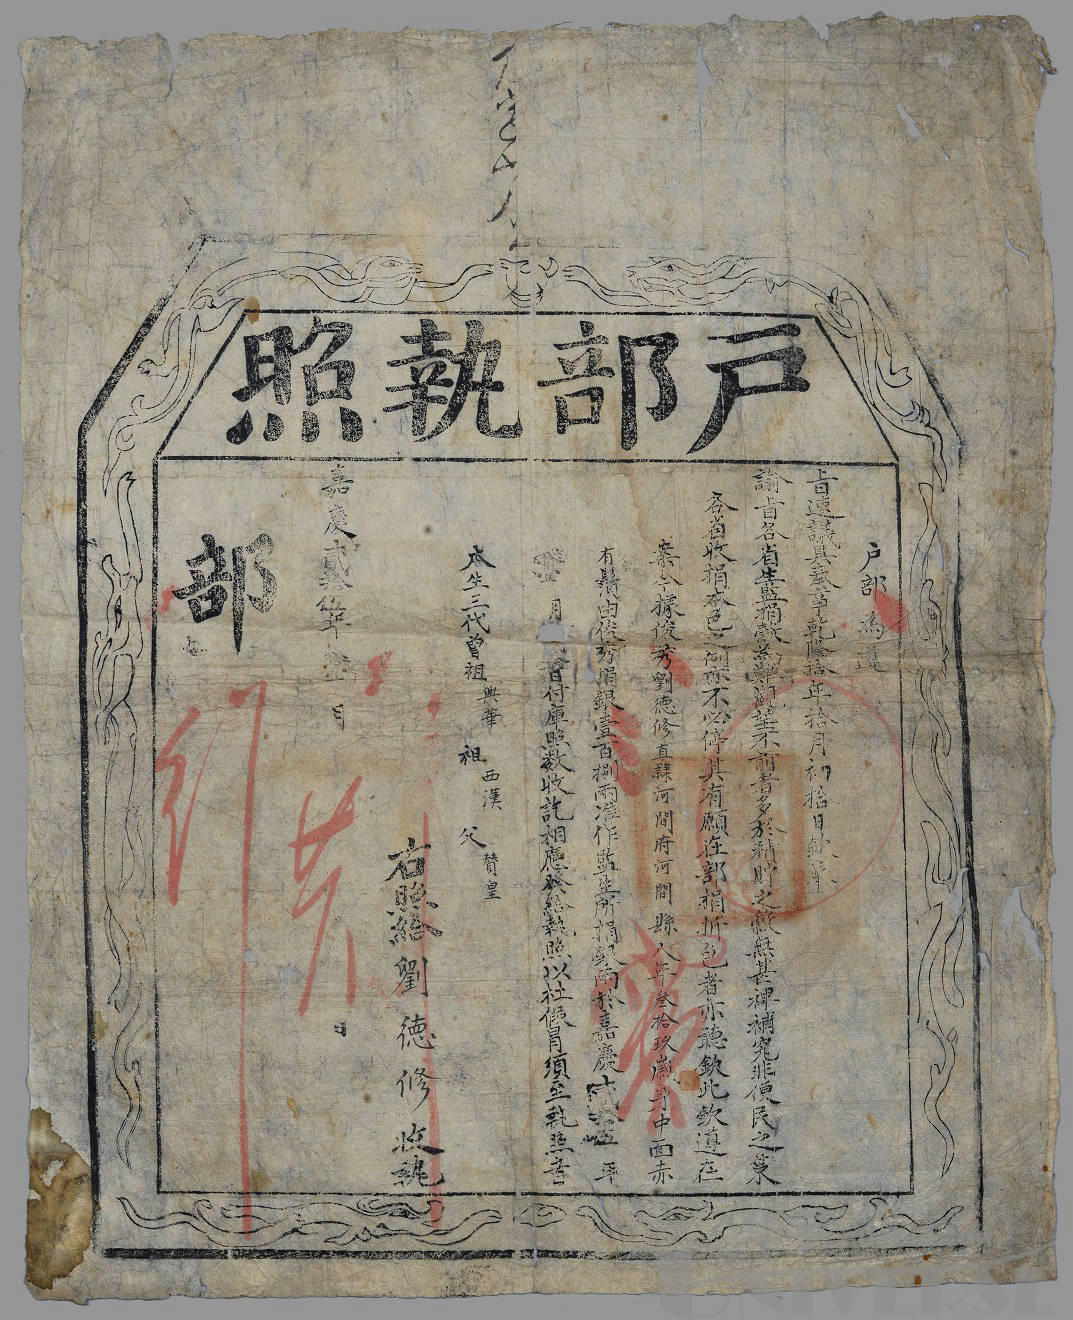 戶部執照
戶部為遵
旨速議具奏事乾隆拾年拾月初拾日欽奉
諭旨各省生監捐穀業難觀望不前者多於積貯之裨無甚裨補究非便民之策
各省收捐本色之例亦不必停其有願在部捐折色者亦聽欽此欽遵在
案今據俊秀劉德修直隸河間府河間縣人年叁拾玖歲身中面赤
有鬚由俊秀捐銀壹百捌兩准作監生所捐銀兩於嘉慶貳拾伍年
月 日付庫照數收訖相應發給執照以杜假冒須至執照者
本生三代曾祖興華 祖西漢 父贊皇
右照給劉德修收執
嘉慶貳拾伍年 月 日
部
行